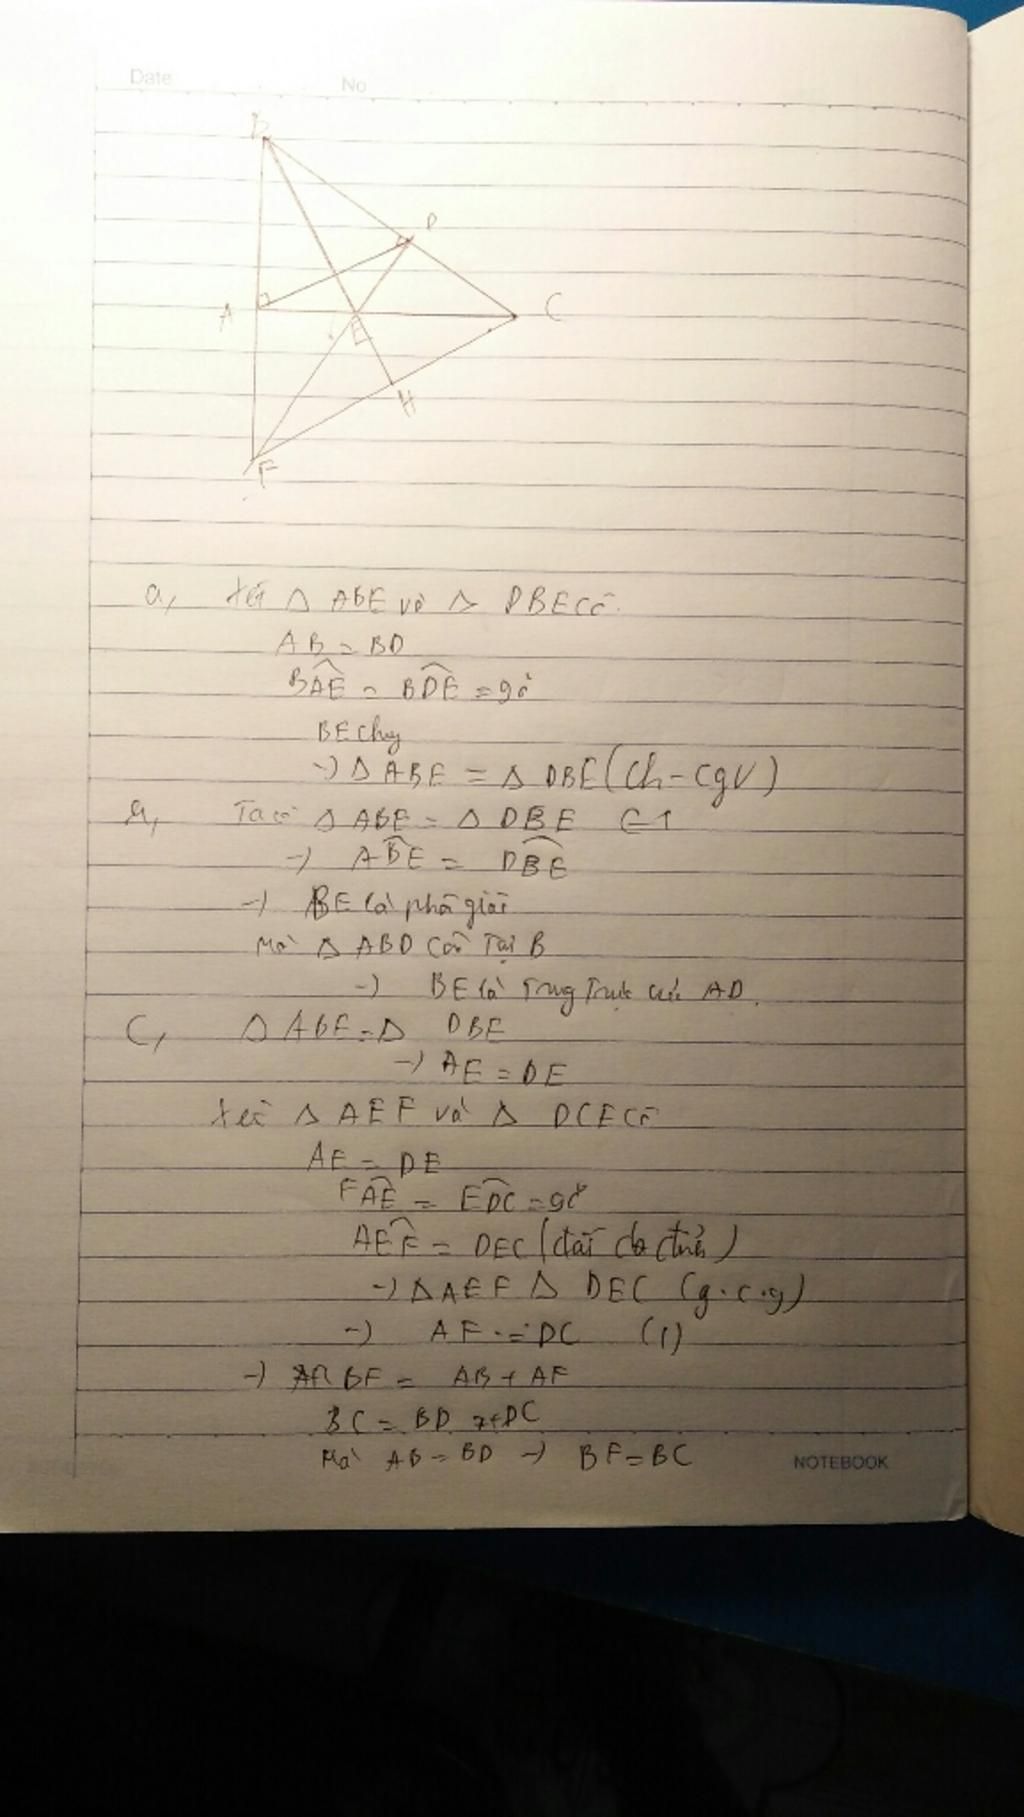 Date
No
B
D
A
C
E
H
F
a, Xét △ ABE và △ DBE Có
AB = BD
BAE = BDE = 90°
BE Chung
→ △ ABE = △ DBE (Ch - Cgv)
Ta có △ ABE = △ DBE
→ ABE = DBE
→ BE là phân giác
Mà △ ABD Cân Tại B
→ BE là Trung Trực của AD.
C, △ ABE = △ DBE
→ AE = DE
Xét △ AEF và △ DCE Có
AE = DE
FAE = EDC = 90°
AEF = DEC (đối đỉnh)
→ △ AEF △ DEC (g.c.g)
→ AF = DC (1)
→ BF = AB + AF
BC = BD + DC
Mà AB = BD → BF = BC
NOTEBOOK